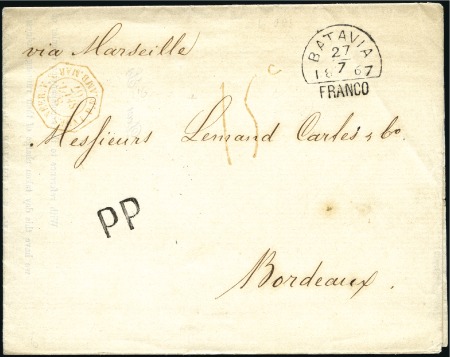 via Marseille
BATAVIA
27
7
1867
FRANCO
15 c
Messieurs Lemand Carles & Co.
PP
Bordeaux.